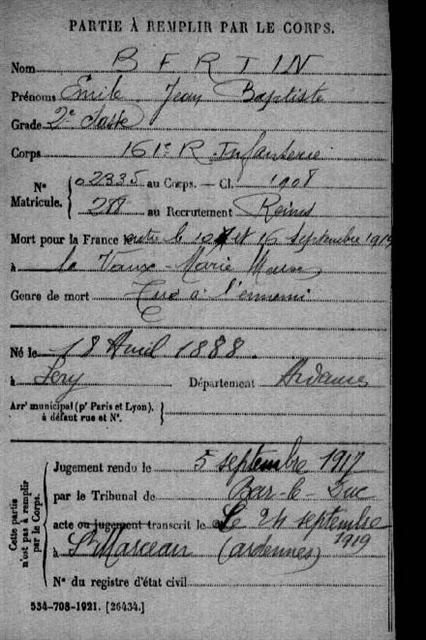 PARTIE À REMPLIR PAR LE CORPS.
Nom BERTIN
Prénoms Emile Jean Baptiste
Grade 2e classe
Corps 161e R. Infanterie
N° Matricule. { 02335 au Corps. — Cl. 1908
288 au Recrutement Reims
Mort pour la France le entre le 10 et 16 septembre 191
à la Vaux-Marie Meuse
Genre de mort Tué à l'ennemi
Né le 18 Avril 1888.
à Département Ardennes
Arrt municipal (pr Paris et Lyon), à défaut rue et N°. }
Cette partie n'est pas à remplir par le Corps.
Jugement rendu le 5 septembre 1917
par le Tribunal de Bar-le-Duc
acte ou jugement transcrit le Le 24 septembre 1919
à St Marceau (Ardennes)
N° du registre d'état civil
534-708-1921. [26434.]